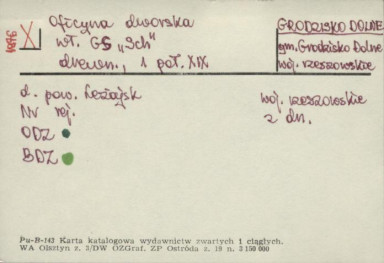 1898
X
Oficyna dworska
wł. GS „Sch"
drewn., 1 poł. XIX
GRODZISKO DOLNE
gm. Grodzisko Dolne
woj. rzeszowskie
d. pow. Leżajsk
Nr rej.
ODZ
BDZ
woj. rzeszowskie
z dn.
Pu-B-143 Karta katalogowa wydawnictw zwartych i ciągłych.
WA Olsztyn z. 3/DW OZGraf. ZP Ostróda z. 19 n. 3 150 000